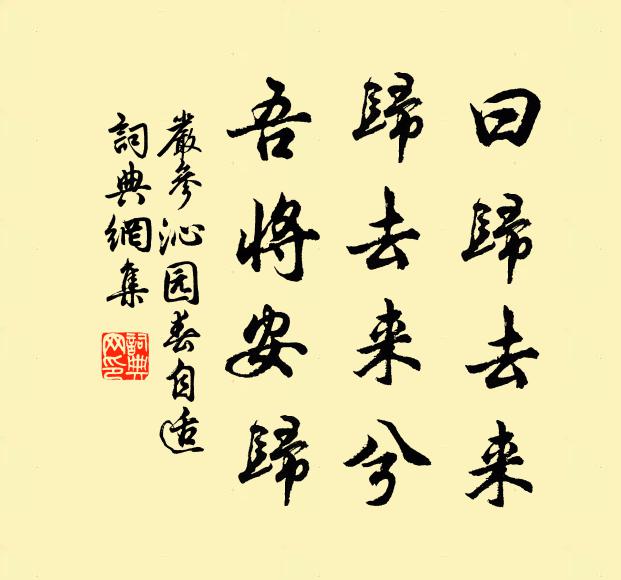 曰歸去来
歸去来兮
吾將安歸
嚴參沁园春自适
詞典網集
詞典网印